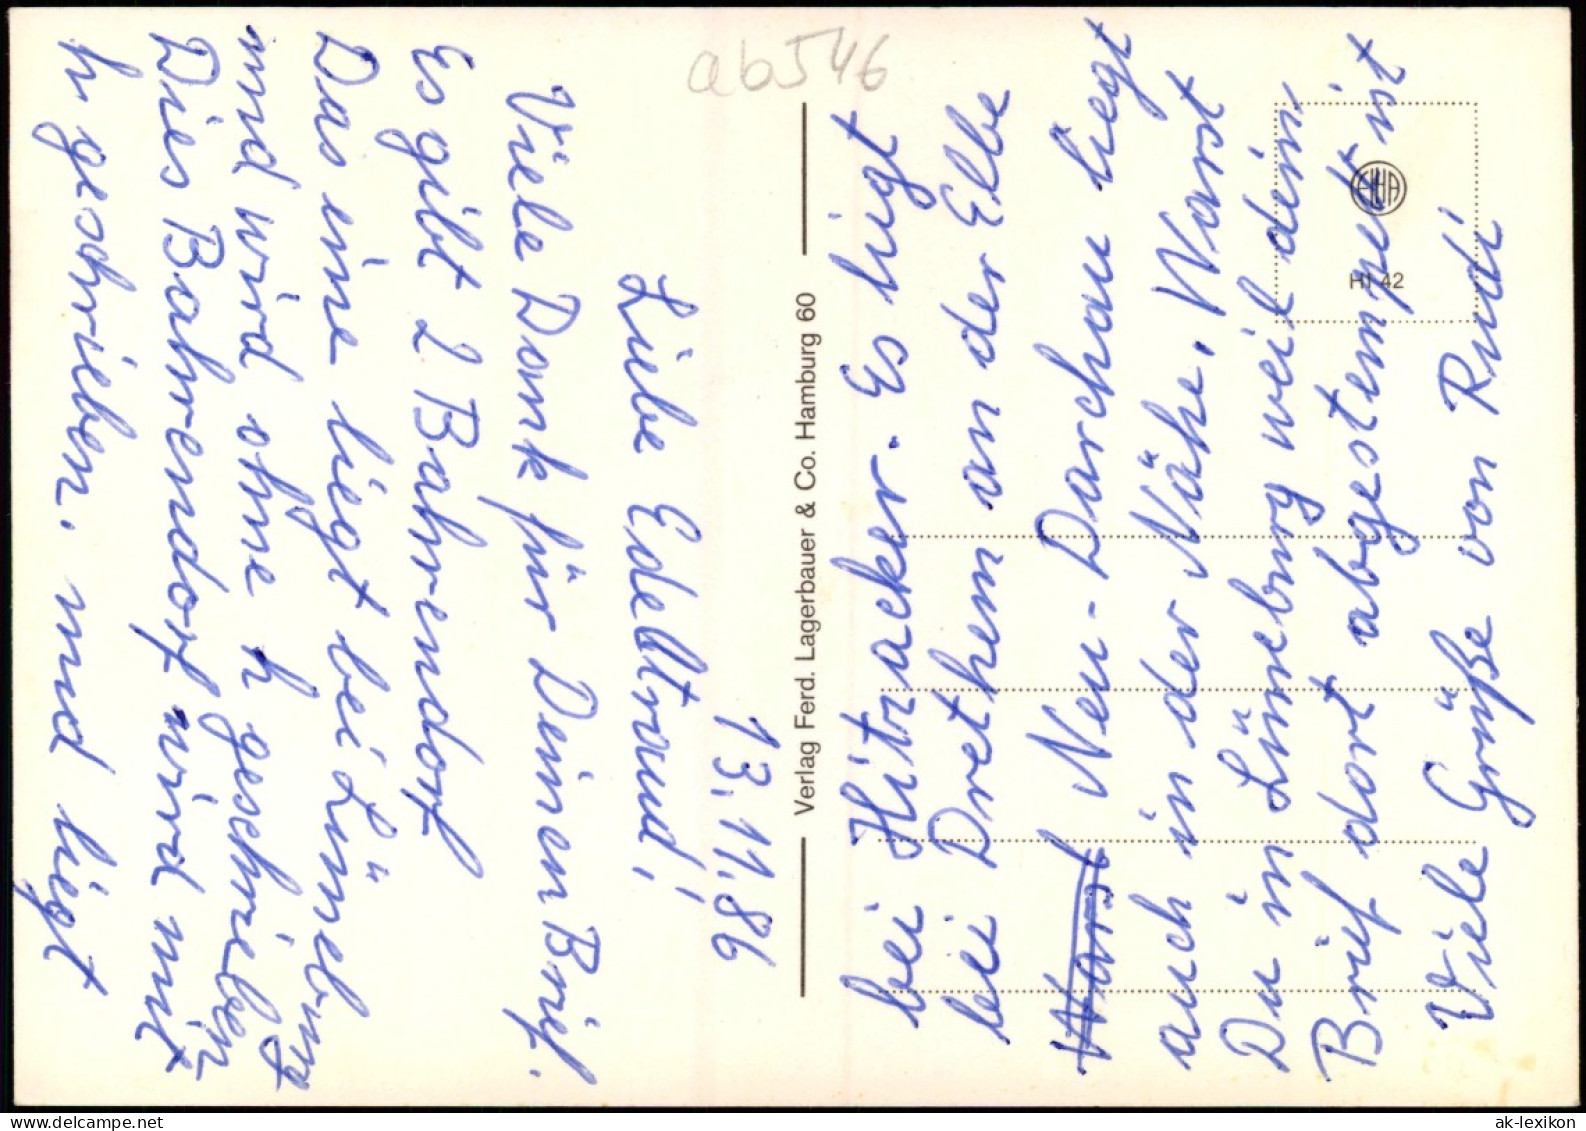 13.11.86
Liebe Edeltraud!
Viele Dank für Deinen Brief.
Es gibt 2 Bahrendorf
Das eine liegt bei Lüneburg
und wird ohne h geschrieben
Dies Bahrendorf wird mit
h geschrieben. und liegt
bei Hitzacker. Es liegt
bei Drethem an der Elbe
Warst Neu-Darchau liegt
auch in der Nähe. Warst
Du in Lüneburg weil dein
Brief dort abgestempelt ist
Viele Grüße von Rudi
Verlag Ferd. Lagerbauer & Co. Hamburg 60
HI 42
ab546
ak-lexikon.com